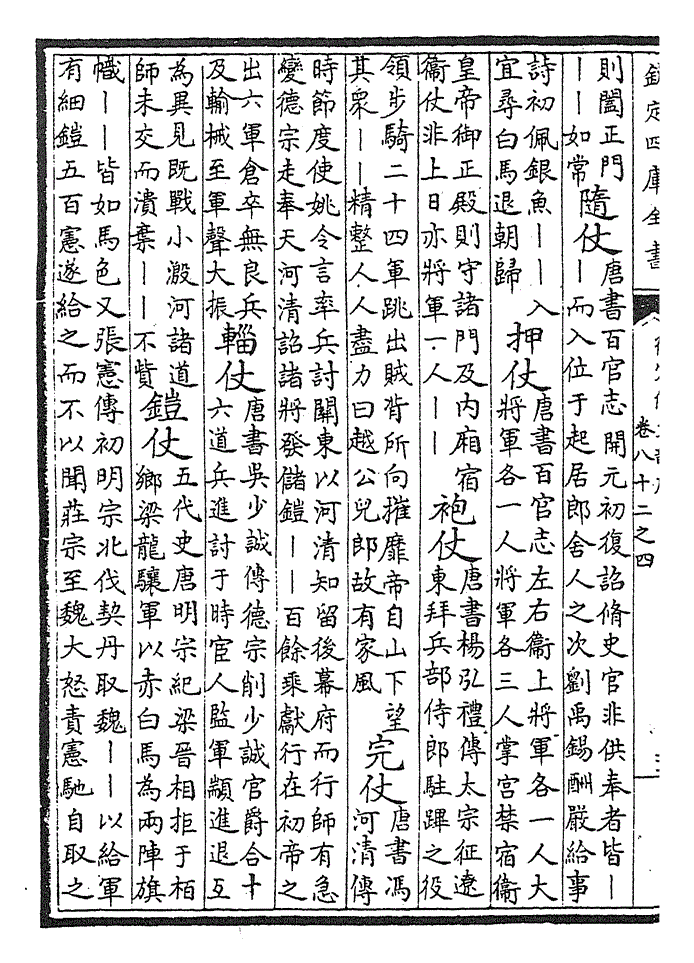 欽定四庫全書
卷八十二之四
則闔正門
丨丨如常
隨仗
唐書百官志開元初復詔脩史官非供奉者皆丨
丨而入位于起居郎舍人之次劉禹錫酬嚴給事
詩初佩銀魚丨丨入
宜尋白馬退朝歸
押仗
唐書百官志左右衞上將軍各一人大
將軍各一人將軍各三人掌宮禁宿衞
皇帝御正殿則守諸門及内廂宿
衞仗非上日亦將軍一人丨丨
袍仗
唐書楊弘禮傳太宗征遼
東拜兵部侍郎駐蹕之役
領步騎二十四軍跳出賊背所向摧靡帝自山下望
其衆丨丨精整人人盡力曰越公兒郎故有家風
完仗
唐書馮
河清傳
時節度使姚令言率兵討關東以河清知留後幕府而行師有急
變德宗走奉天河清詔諸將發儲鎧丨丨百餘乘獻行在初帝之
出六軍倉卒無良兵
及輸械至軍聲大振
輜仗
唐書吳少誠傳德宗削少誠官爵合十
六道兵進討于時宦人監軍顓進退互
為異見既戰小溵河諸道
師未交而潰棄丨丨不貲
鎧仗
五代史唐明宗紀梁晉相拒于柏
鄉梁龍驤軍以赤白馬為兩陣旗
幟丨丨皆如馬色又張憲傳初明宗北伐契丹取魏丨丨以給軍
有細鎧五百憲遂給之而不以聞莊宗至魏大怒責憲馳自取之